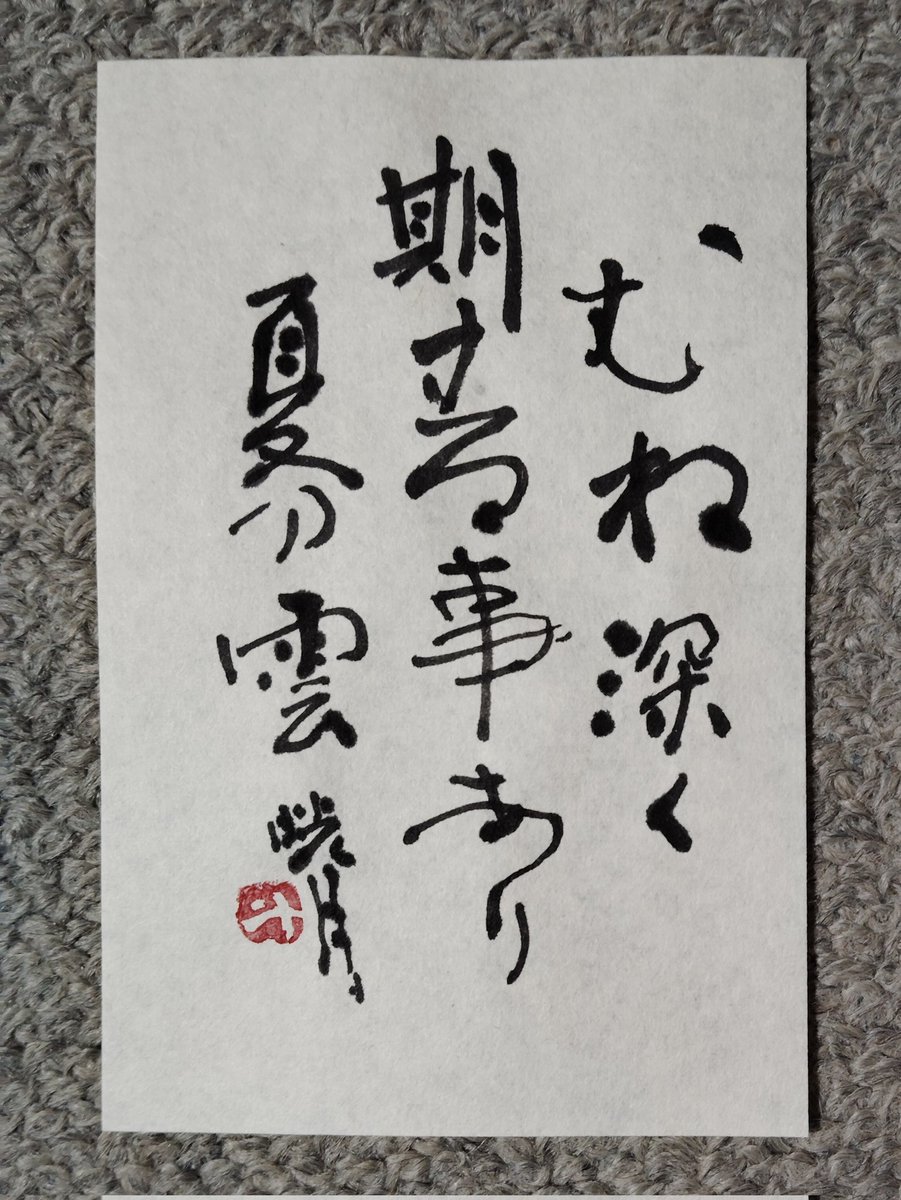 むね深く
期する事あり
夏の雲